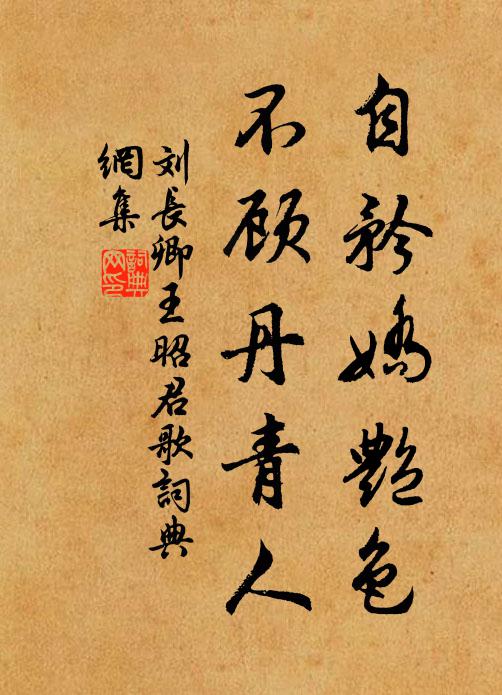 自矜娇艳色
不顾丹青人
刘長卿王昭君歌詞典
網集
詞典
网印